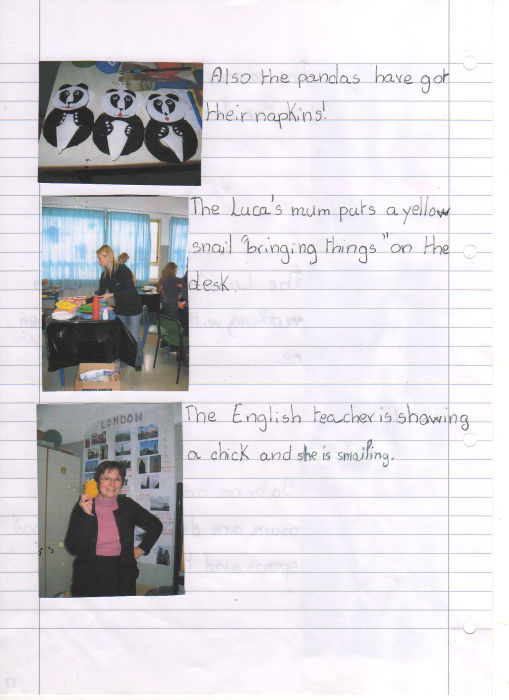 Also the pandas have got
their napkins!
The Luca's mum puts a yellow
snail "bringing things" on the
desk.
LONDON
The English teacher is showing
a chick and she is smailing.